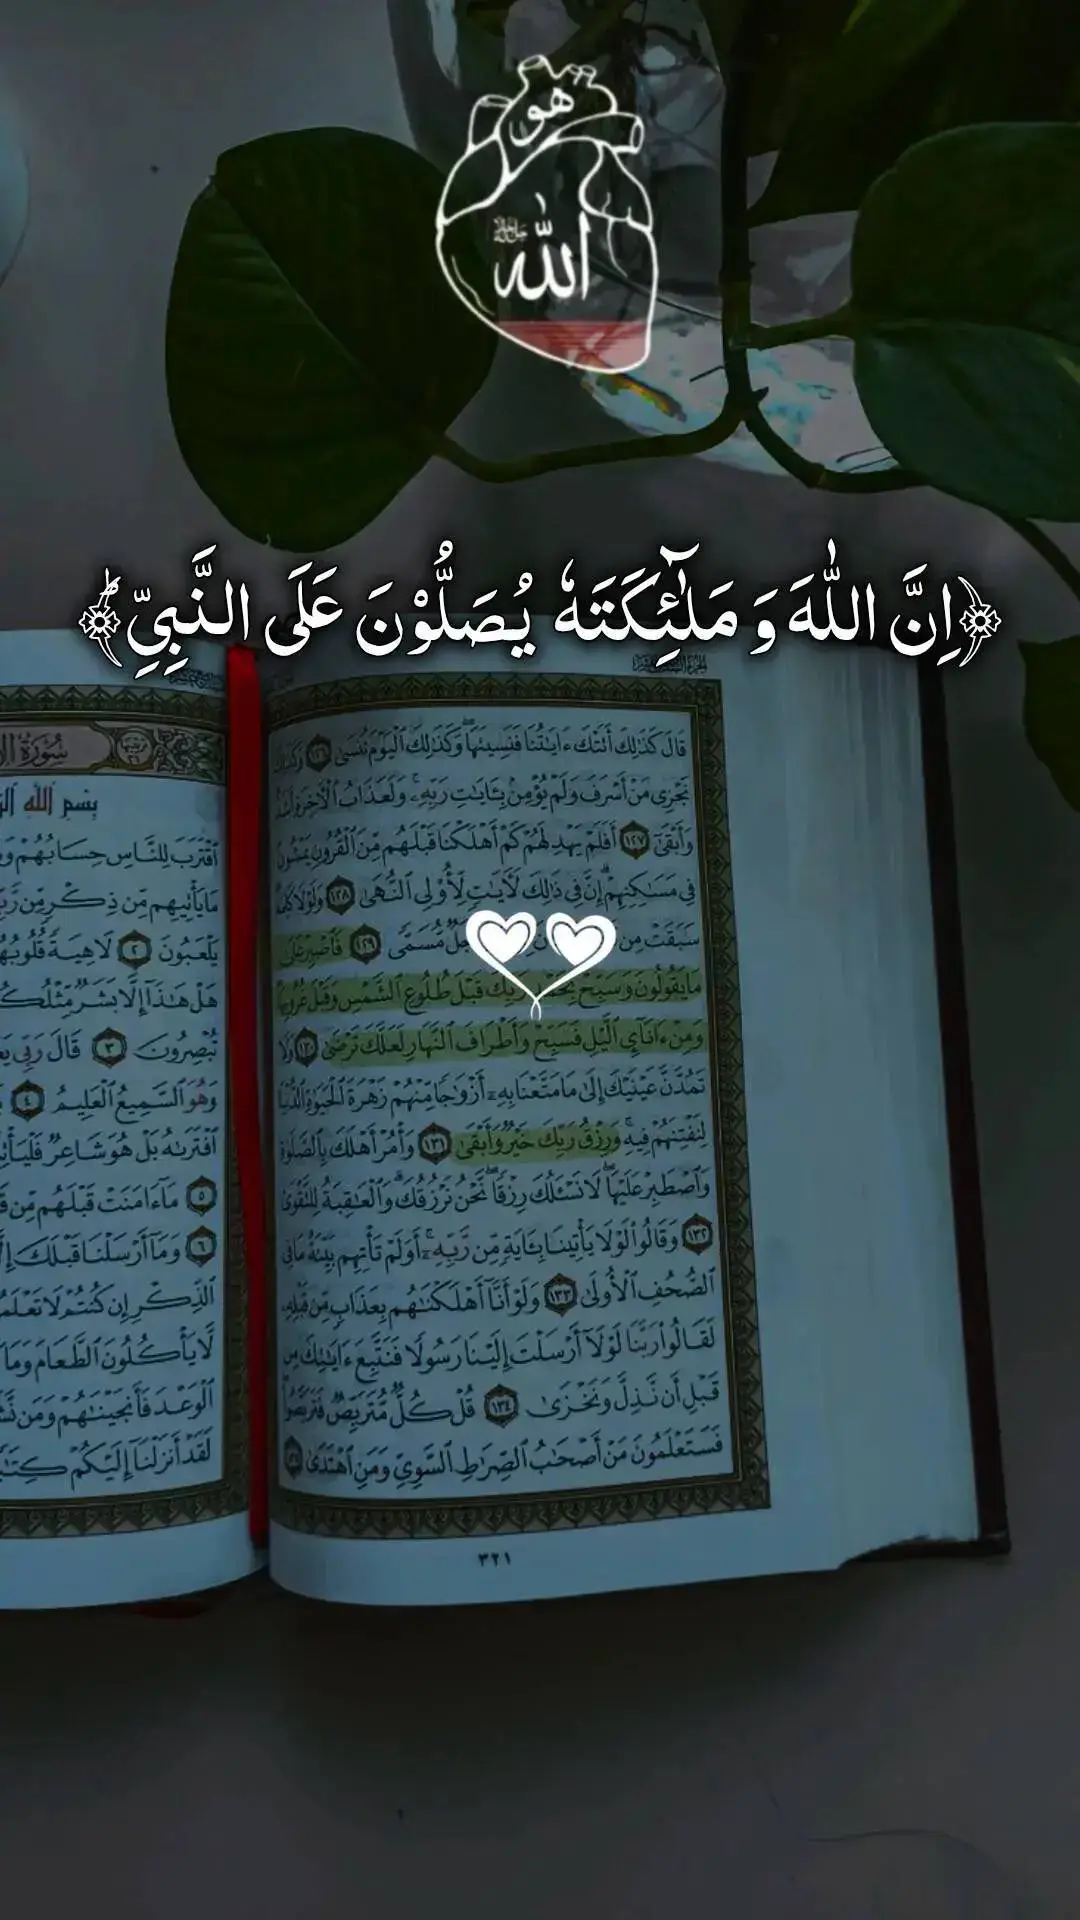 هو
الله
جل جلاله
﴿اِنَّ اللّٰهَ وَ مَلٰٓئِكَتَهٗ يُصَلُّوْنَ عَلَى النَّبِيِّ ؕ﴾
قَالَ كَذَٰلِكَ أَتَتْكَ ءَايَٰتُنَا فَنَسِيتَهَا ۖ وَكَذَٰلِكَ ٱلْيَوْمَ تُنسَىٰ ١٢٦ وَكَذَٰلِكَ
نَجْزِى مَنْ أَسْرَفَ وَلَمْ يُؤْمِنۢ بِـَٔايَٰتِ رَبِّهِۦ ۚ وَلَعَذَابُ ٱلْءَاخِرَةِ أَشَدُّ
وَأَبْقَىٰٓ ١٢٧ أَفَلَمْ يَهْدِ لَهُمْ كَمْ أَهْلَكْنَا قَبْلَهُم مِّنَ ٱلْقُرُونِ يَمْشُونَ
فِى مَسَٰكِنِهِمْ ۗ إِنَّ فِى ذَٰلِكَ لَءَايَٰتٍ لِّأُو۟لِى ٱلنُّهَىٰ ١٢٨ وَلَوْلَا كَلِمَةٌ
سَبَقَتْ مِن مُّسَمًّى ١٢٩ فَٱصْبِرْ عَلَىٰ
مَا يَقُولُونَ وَسَبِّحْ بِحَمْدِ رَبِّكَ قَبْلَ طُلُوعِ ٱلشَّمْسِ وَقَبْلَ غُرُوبِهَا
وَمِنْ ءَانَآئِ ٱلَّيْلِ فَسَبِّحْ وَأَطْرَافَ ٱلنَّهَارِ لَعَلَّكَ تَرْضَىٰ ١٣٠ وَلَا
تَمُدَّنَّ عَيْنَيْكَ إِلَىٰ مَا مَتَّعْنَا بِهِۦٓ أَزْوَٰجًا مِّنْهُمْ زَهْرَةَ ٱلْحَيَوٰةِ ٱلدُّنْيَا
لِنَفْتِنَهُمْ فِيهِ ۚ وَرِزْقُ رَبِّكَ خَيْرٌ وَأَبْقَىٰ ١٣١ وَأْمُرْ أَهْلَكَ بِٱلصَّلَوٰةِ
وَٱصْطَبِرْ عَلَيْهَا ۖ لَا نَسْـَٔلُكَ رِزْقًا ۖ نَّحْنُ نَرْزُقُكَ ۗ وَٱلْعَٰقِبَةُ لِلتَّقْوَىٰ
١٣٢ وَقَالُوا۟ لَوْلَا يَأْتِينَا بِـَٔايَةٍ مِّن رَّبِّهِۦٓ ۚ أَوَلَمْ تَأْتِهِم بَيِّنَةُ مَا فِى
ٱلصُّحُفِ ٱلْأُولَىٰ ١٣٣ وَلَوْ أَنَّآ أَهْلَكْنَٰهُم بِعَذَابٍ مِّن قَبْلِهِۦ
لَقَالُوا۟ رَبَّنَا لَوْلَآ أَرْسَلْتَ إِلَيْنَا رَسُولًا فَنَتَّبِعَ ءَايَٰتِكَ مِن
قَبْلِ أَن نَّذِلَّ وَنَخْزَىٰ ١٣٤ قُلْ كُلٌّ مُّتَرَبِّصٌ فَتَرَبَّصُوا۟ ۖ
فَسَتَعْلَمُونَ مَنْ أَصْحَٰبُ ٱلصِّرَٰطِ ٱلسَّوِىِّ وَمَنِ ٱهْتَدَىٰ ١٣٥
٣٢١
سُورَةُ
بِسْمِ ٱللَّهِ
ٱقْتَرَبَ لِلنَّاسِ حِسَابُهُمْ
مَا يَأْتِيهِم مِّن ذِكْرٍ مِّن
يَلْعَبُونَ ٢ لَاهِيَةً قُلُوبُهُمْ
هَلْ هَٰذَآ إِلَّا بَشَرٌ مِّثْلُكُمْ
تُبْصِرُونَ ٣ قَالَ رَبِّى
وَهُوَ ٱلسَّمِيعُ ٱلْعَلِيمُ ٤
ٱفْتَرَىٰهُ بَلْ هُوَ شَاعِرٌ
٥ مَآ ءَامَنَتْ قَبْلَهُم مِّن
٦ وَمَآ أَرْسَلْنَا قَبْلَكَ
ٱلذِّكْرِ إِن كُنتُمْ لَا
لَّا يَأْكُلُونَ ٱلطَّعَامَ وَمَا
ٱلْوَعْدَ فَأَنجَيْنَٰهُمْ وَمَن
لَقَدْ أَنزَلْنَآ إِلَيْكُمْ